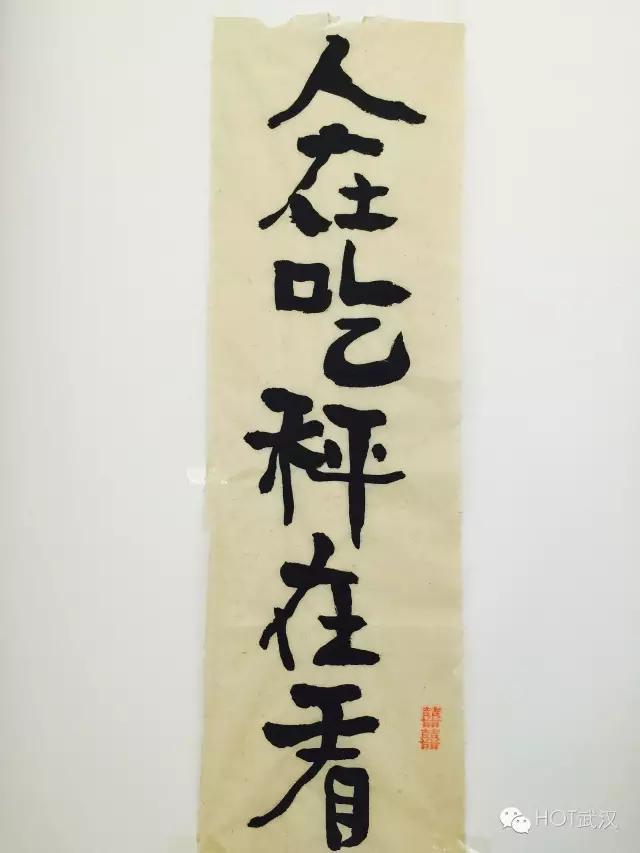 人在吃秤在看
HOT武汉